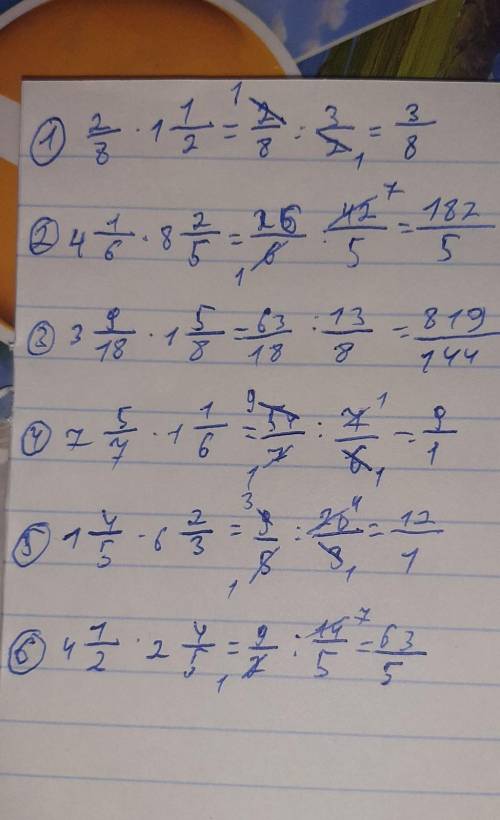 ① 2/8 · 1 1/2 = 2/8 : 3/2 = 3/8
② 4 1/6 · 8 2/5 = 26/6 : 42/5 = 182/5
③ 3 9/18 · 1 5/8 = 63/18 : 13/8 = 819/144
④ 7 5/7 · 1 1/6 = 54/7 : 7/6 = 9/1
⑤ 1 4/5 · 6 2/3 = 9/5 : 20/3 = 12/1
⑥ 4 1/2 · 2 4/5 = 9/2 : 14/5 = 63/5